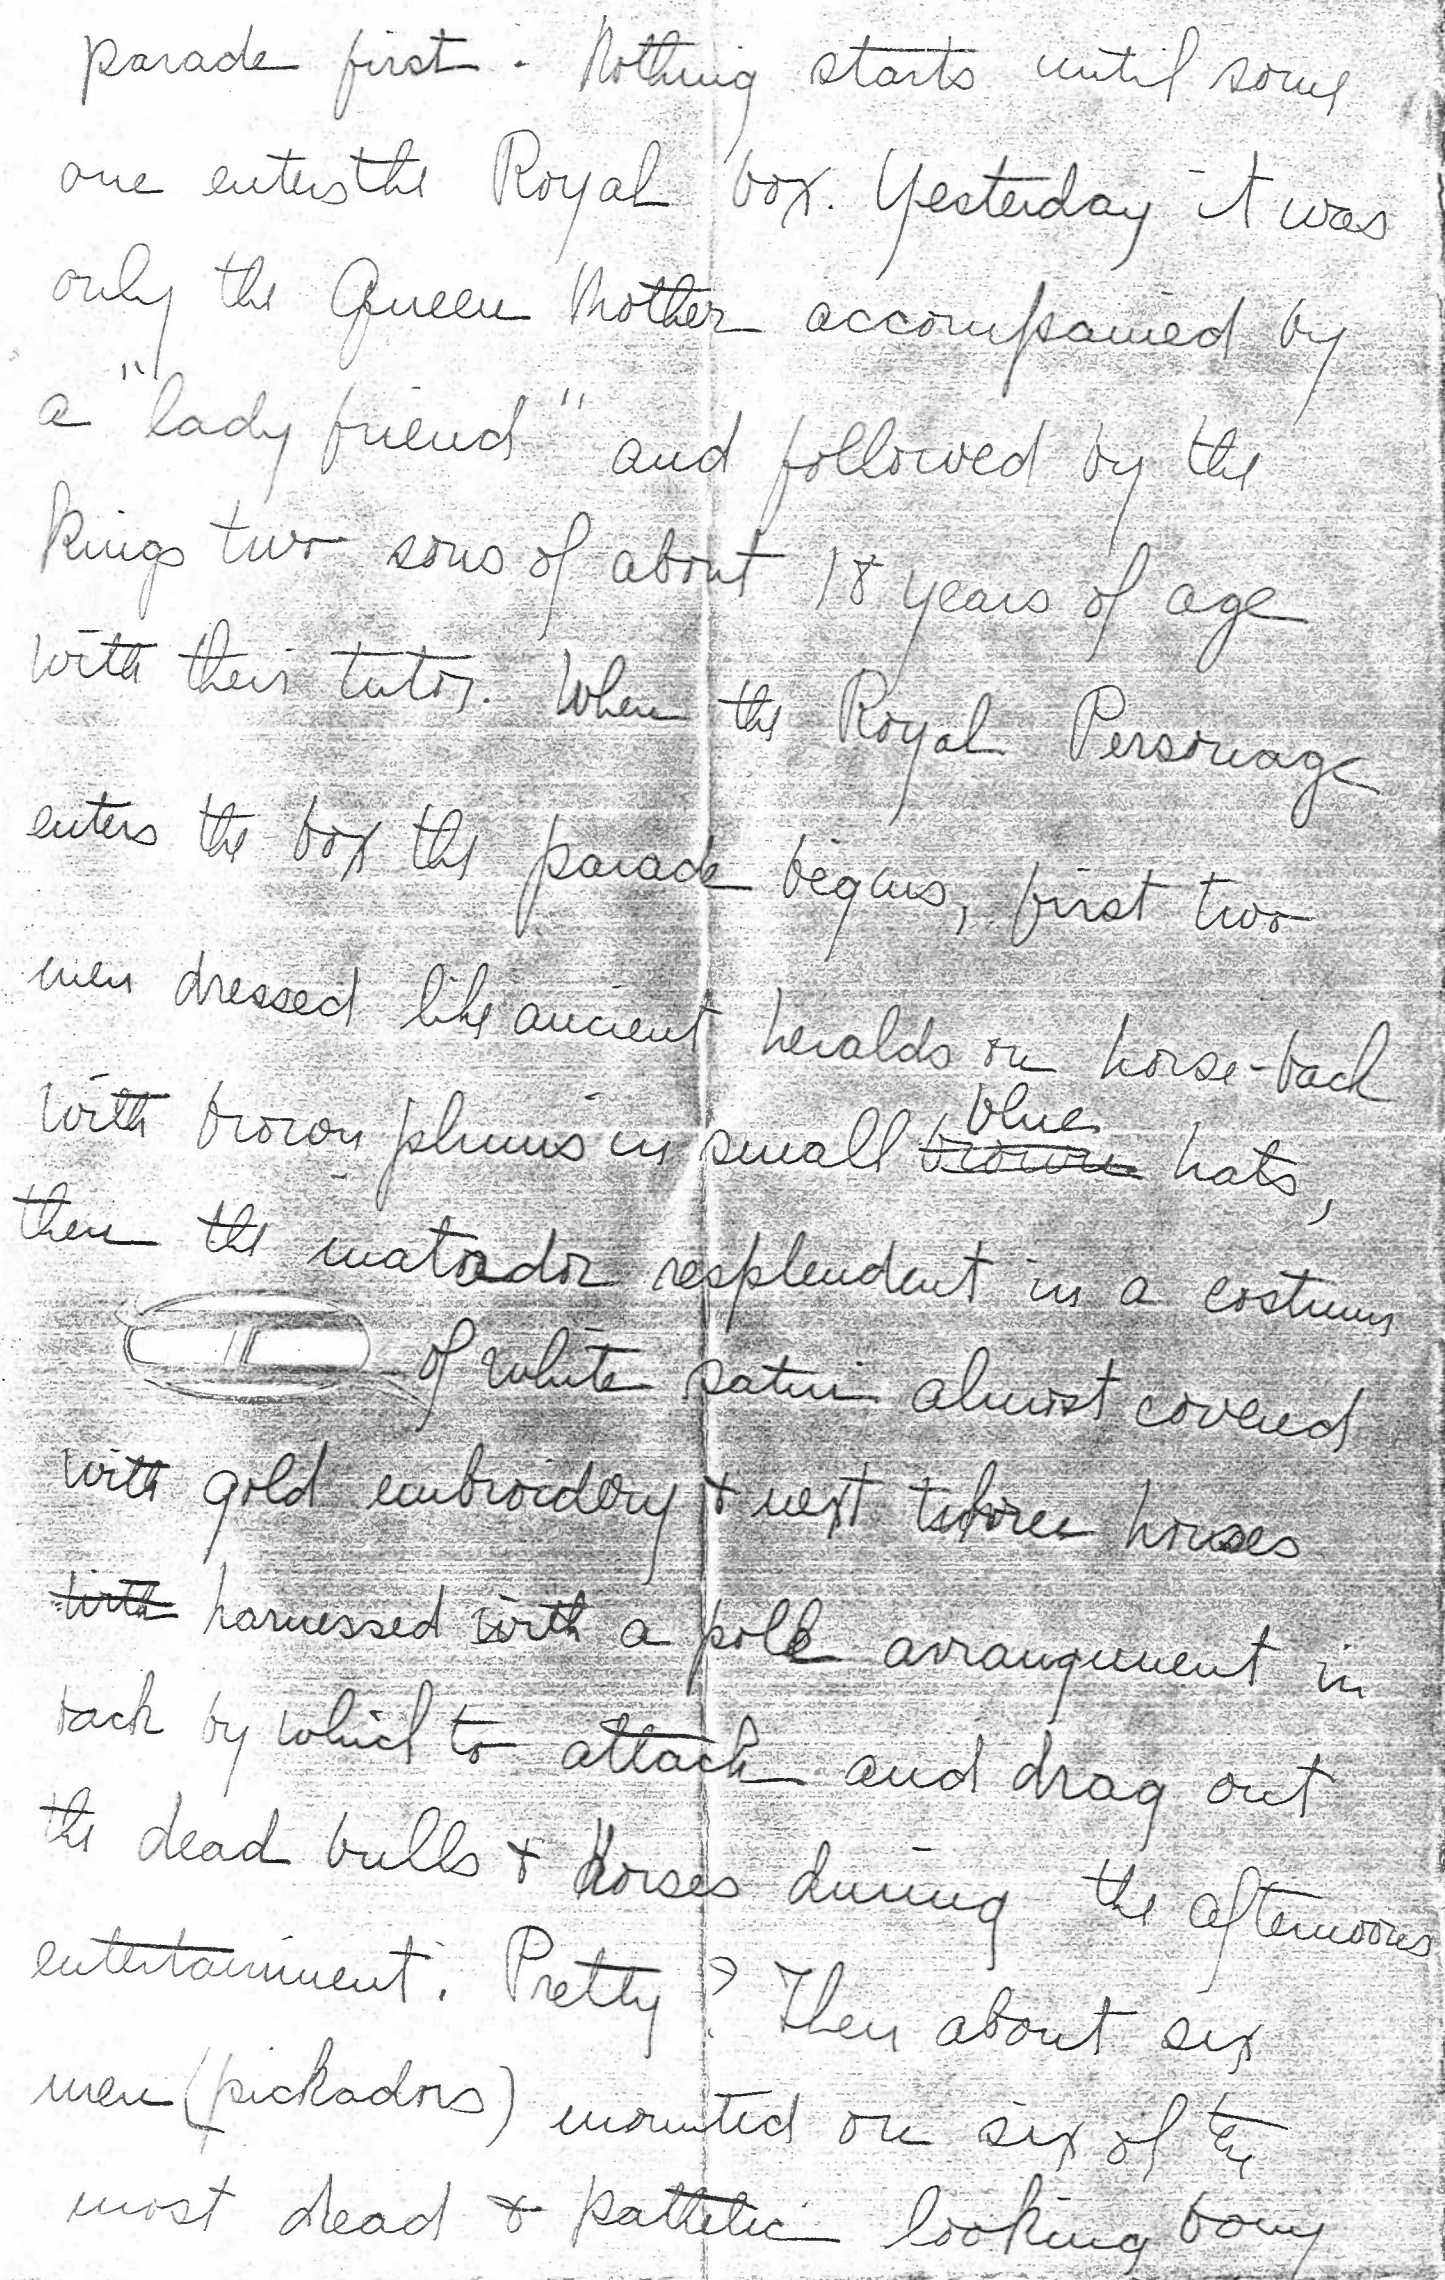 parade first. Nothing starts until some
one enters the Royal box. Yesterday it was
only the Queen Mother accompanied by
a "lady friend" and followed by the
kings two sons of about 18 years of age
with their tutor. When the Royal Personage
enters the box the parade begins, first two
men dressed like ancient heralds on horse-back
with brown plums in small brown blue hats,
then the matador resplendent in a costume
of white satin almost covered
with gold embroidery & next three horses
with harnessed with a pole arrangement in
back by which to attach and drag out
the dead bulls & horses during the afternoons
entertainment. Pretty? Then about six
men (pickadors) mounted on six of the
most dead & pathetic looking bony